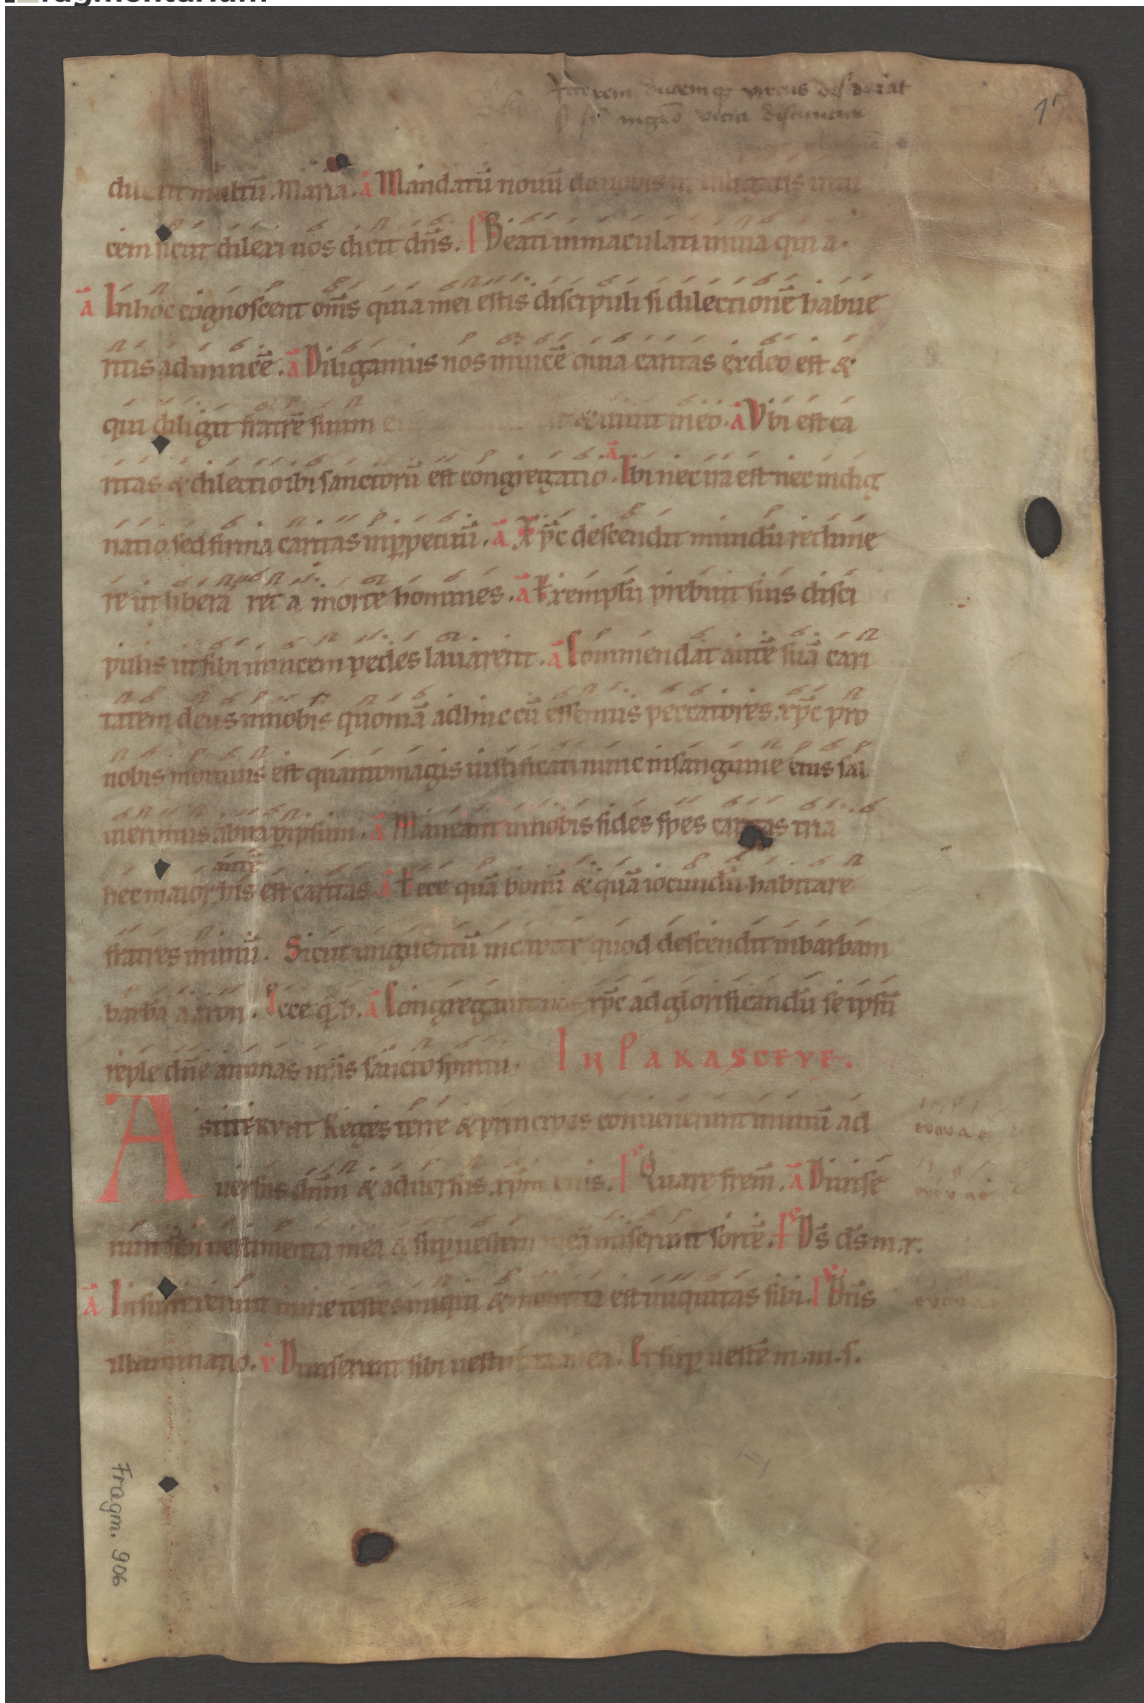 Fragmentarium
1r
multū. Maria. a Mandatū novū do vobis ut diligatis invi
cem sicut dilexi vos dicit dn̄s. Ps Beati inmaculati in via qui a.
a In hoc cognoscent om̄s quia mei estis discipuli si dilectionē habue
ritis ad invicē. a Diligamus nos invicē quia caritas ex deo est &
qui diligit fratrē suum & vivit meo. a Vbi est ca
ritas & dilectio ibi sanctorū est congregatio. a Ibi nec ira est nec indig
natio sed firma caritas inp̄petuū. a Xp̄c descendit mundū redime
re ut libera ret a morte homines. a Exemplū prebuit suis disci
pulis ut sibi invicem pedes lavarent. a Commendat autē suā cari
tatem deus in nobis quoniā adhuc cū essemus peccatores. xp̄c pro
nobis mortuus est quanto magis iustificati nunc in sanguine eius sal
vi erimus ab ira p̄ ipsum. a Maneant in nobis fides spes caritas tria
autē
hec maior his est caritas. a Ecce quā bonū & quā iocundū habitare
fratres in unū. Sicut unguentū in capite quod descendit in barbam
barbā aaron. Ecce q. b. a Congregavit nos xp̄c ad glorificandū se ipsū
reple dn̄e animas nr̄is sancto spiritu. In Parasceve.
Astiterunt Reges terre & principes convenerunt in unū ad
evovae
versus dn̄m & adversus xp̄m eius. Ps Quare frem̄. a Diviser
evovae
runt sibi vestimenta mea & sup̄ vestem meā miserunt sortē. Ps D̄s d̄s m. r.
a Insurrexerunt in me testes iniqui & mentita est iniquitas sibi. Ps Dn̄s
evovae
illuminatio. v Diviserunt sibi vestimenta mea. Et sup̄ vestē m. m. s.
Fragm. 906